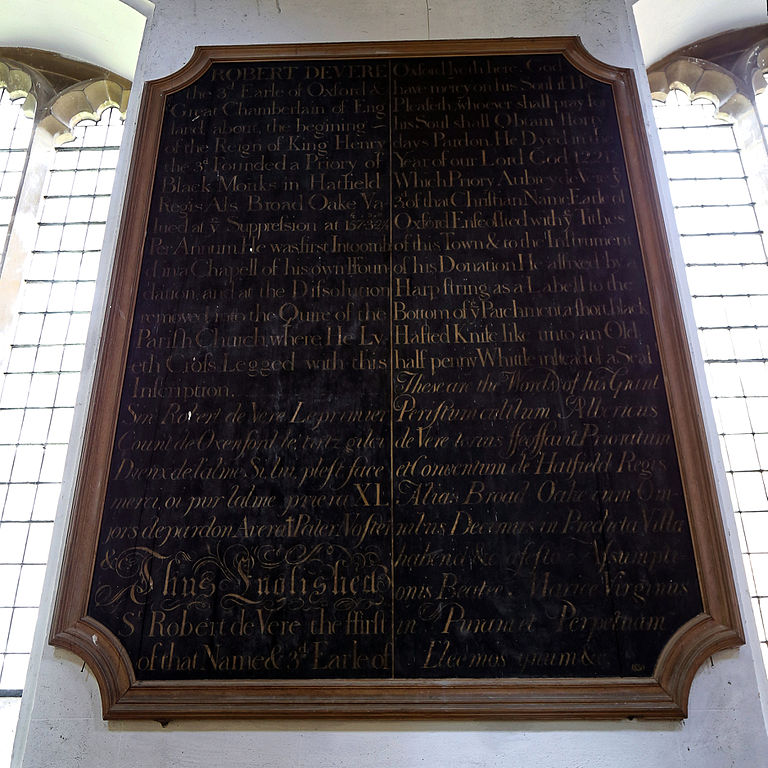 ROBERT DEVERE
the 3d Earle of Oxford &
Great Chamberlain of Eng
land about, the begining
of the Reign of King Henry
the 3d Founded a Priory of
Black Monks in Hatfield
Regis Als Broad Oake Va-
lued at ye Suppression at
Per Annum He was first Intoomb
d in a Chapell of his own Foun
dation, and at the Dissolution
removed into the Quire of the
Parish Church, where He Ly-
eth Cross Legged with this
Inscription.
Sire Robert de Vere Le primier
Count de Oxenford le tertz gilci
Dieux de l'alme Si lui plest face
merci, oi pur l'alme priera XL
jors de pardon Avera Pater Noster
& Thus Englished
Sr Robert de Vere the ffirst
of that Name & 3d Earle of
Oxford lyeth here God
have mercy on his Soul if He
Pleaseth, whoever shall pray for
his Soul shall Obtain Forty
days Pardon. He Dyed in the
Year of our Lord God 1221
Which Priory Aubrey de Vere ye
3d of that Christian Name Earle of
Oxford Enfeoffed with ye Tithes
of this Town & to the Instrument
of his Donation He affixed by a
Harp string as a Labell to the
Bottom of ye Parchment a short black
Hafted Knife like unto an Old
half penny Whittle instead of a Seal
These are the Words of his Grant
de Vere feoffavit Prioratum
et Conventum de Hatfield Regis
Alias Broad Oake cum Om-
nibus Decimis in Predicta Villa
habend &c festo Assumpti-
onis Beatæ Mariæ Virginis
in Puram et Perpetuam
Eleemosynam &c